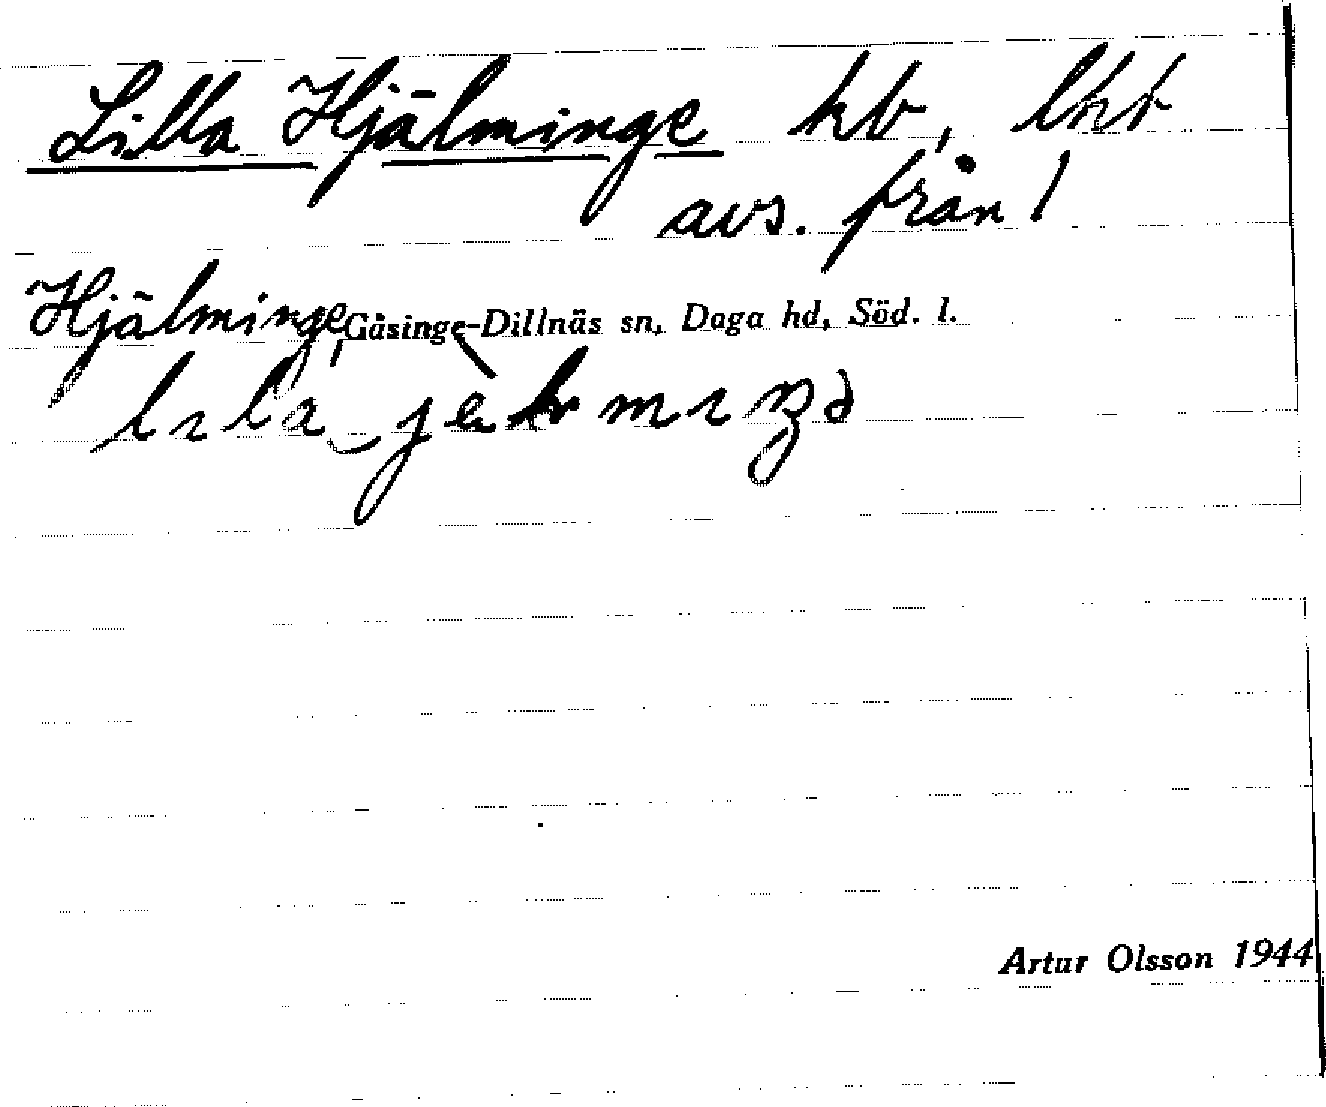 Lilla Hjälminge hb, lht
avs. från 1
Hjälminge, Gåsinge-Dillnäs sn, Daga hd, Söd. l.
Artur Olsson 1944